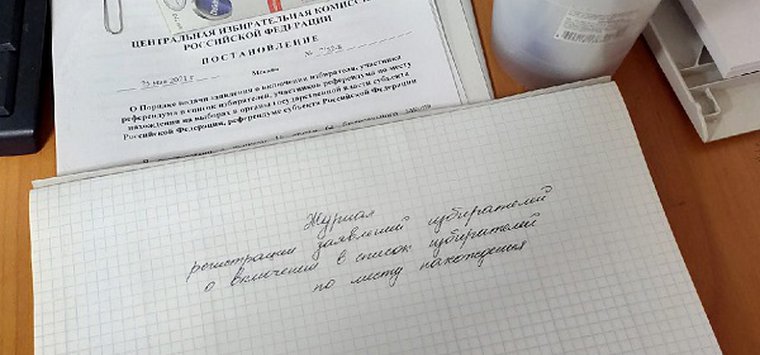 ЦЕНТРАЛЬНАЯ ИЗБИРАТЕЛЬНАЯ КОМИССИ
РОССИЙСКОЙ ФЕДЕРАЦИИ
ПОСТАНОВЛЕНИЕ
25 мая 2021 г
Москва
№
О Порядке подачи заявления о включении избирателя, участника
референдума в список избирателей, участников референдума по месту
нахождения на выборах в органы государственной власти субъекта
Российской Федерации, референдуме субъекта Российской Федерации
Журнал
регистрации заявлений избирателей
о включении в список избирателей
по месту нахождения